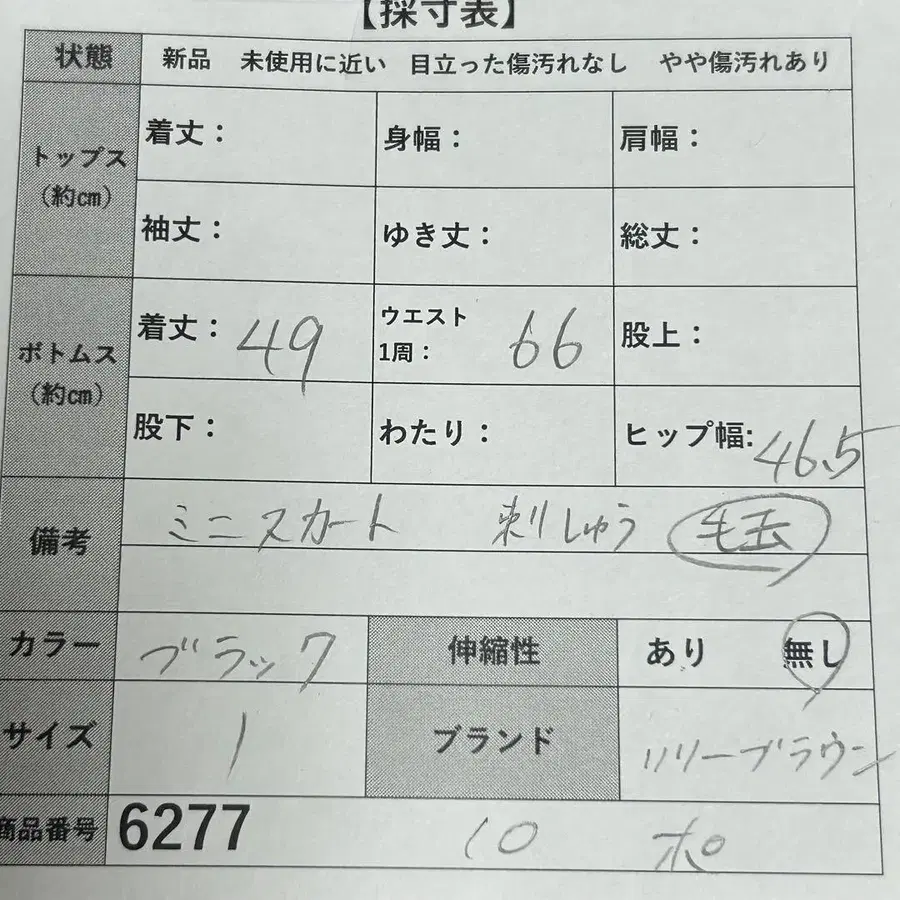 【採寸表】
状態 新品 未使用に近い 目立った傷汚れなし やや傷汚れあり
トップス
(約㎝)
着丈： 身幅： 肩幅：
袖丈： ゆき丈： 総丈：
ボトムス
(約㎝)
着丈： 49 ウエスト
1周： 66 股上：
股下： わたり： ヒップ幅: 46.5
備考 ミニスカート 刺しゅう 毛玉
カラー ブラック 伸縮性 あり 無し
サイズ 1 ブランド リリーブラウン
商品番号 6277 10 ポ